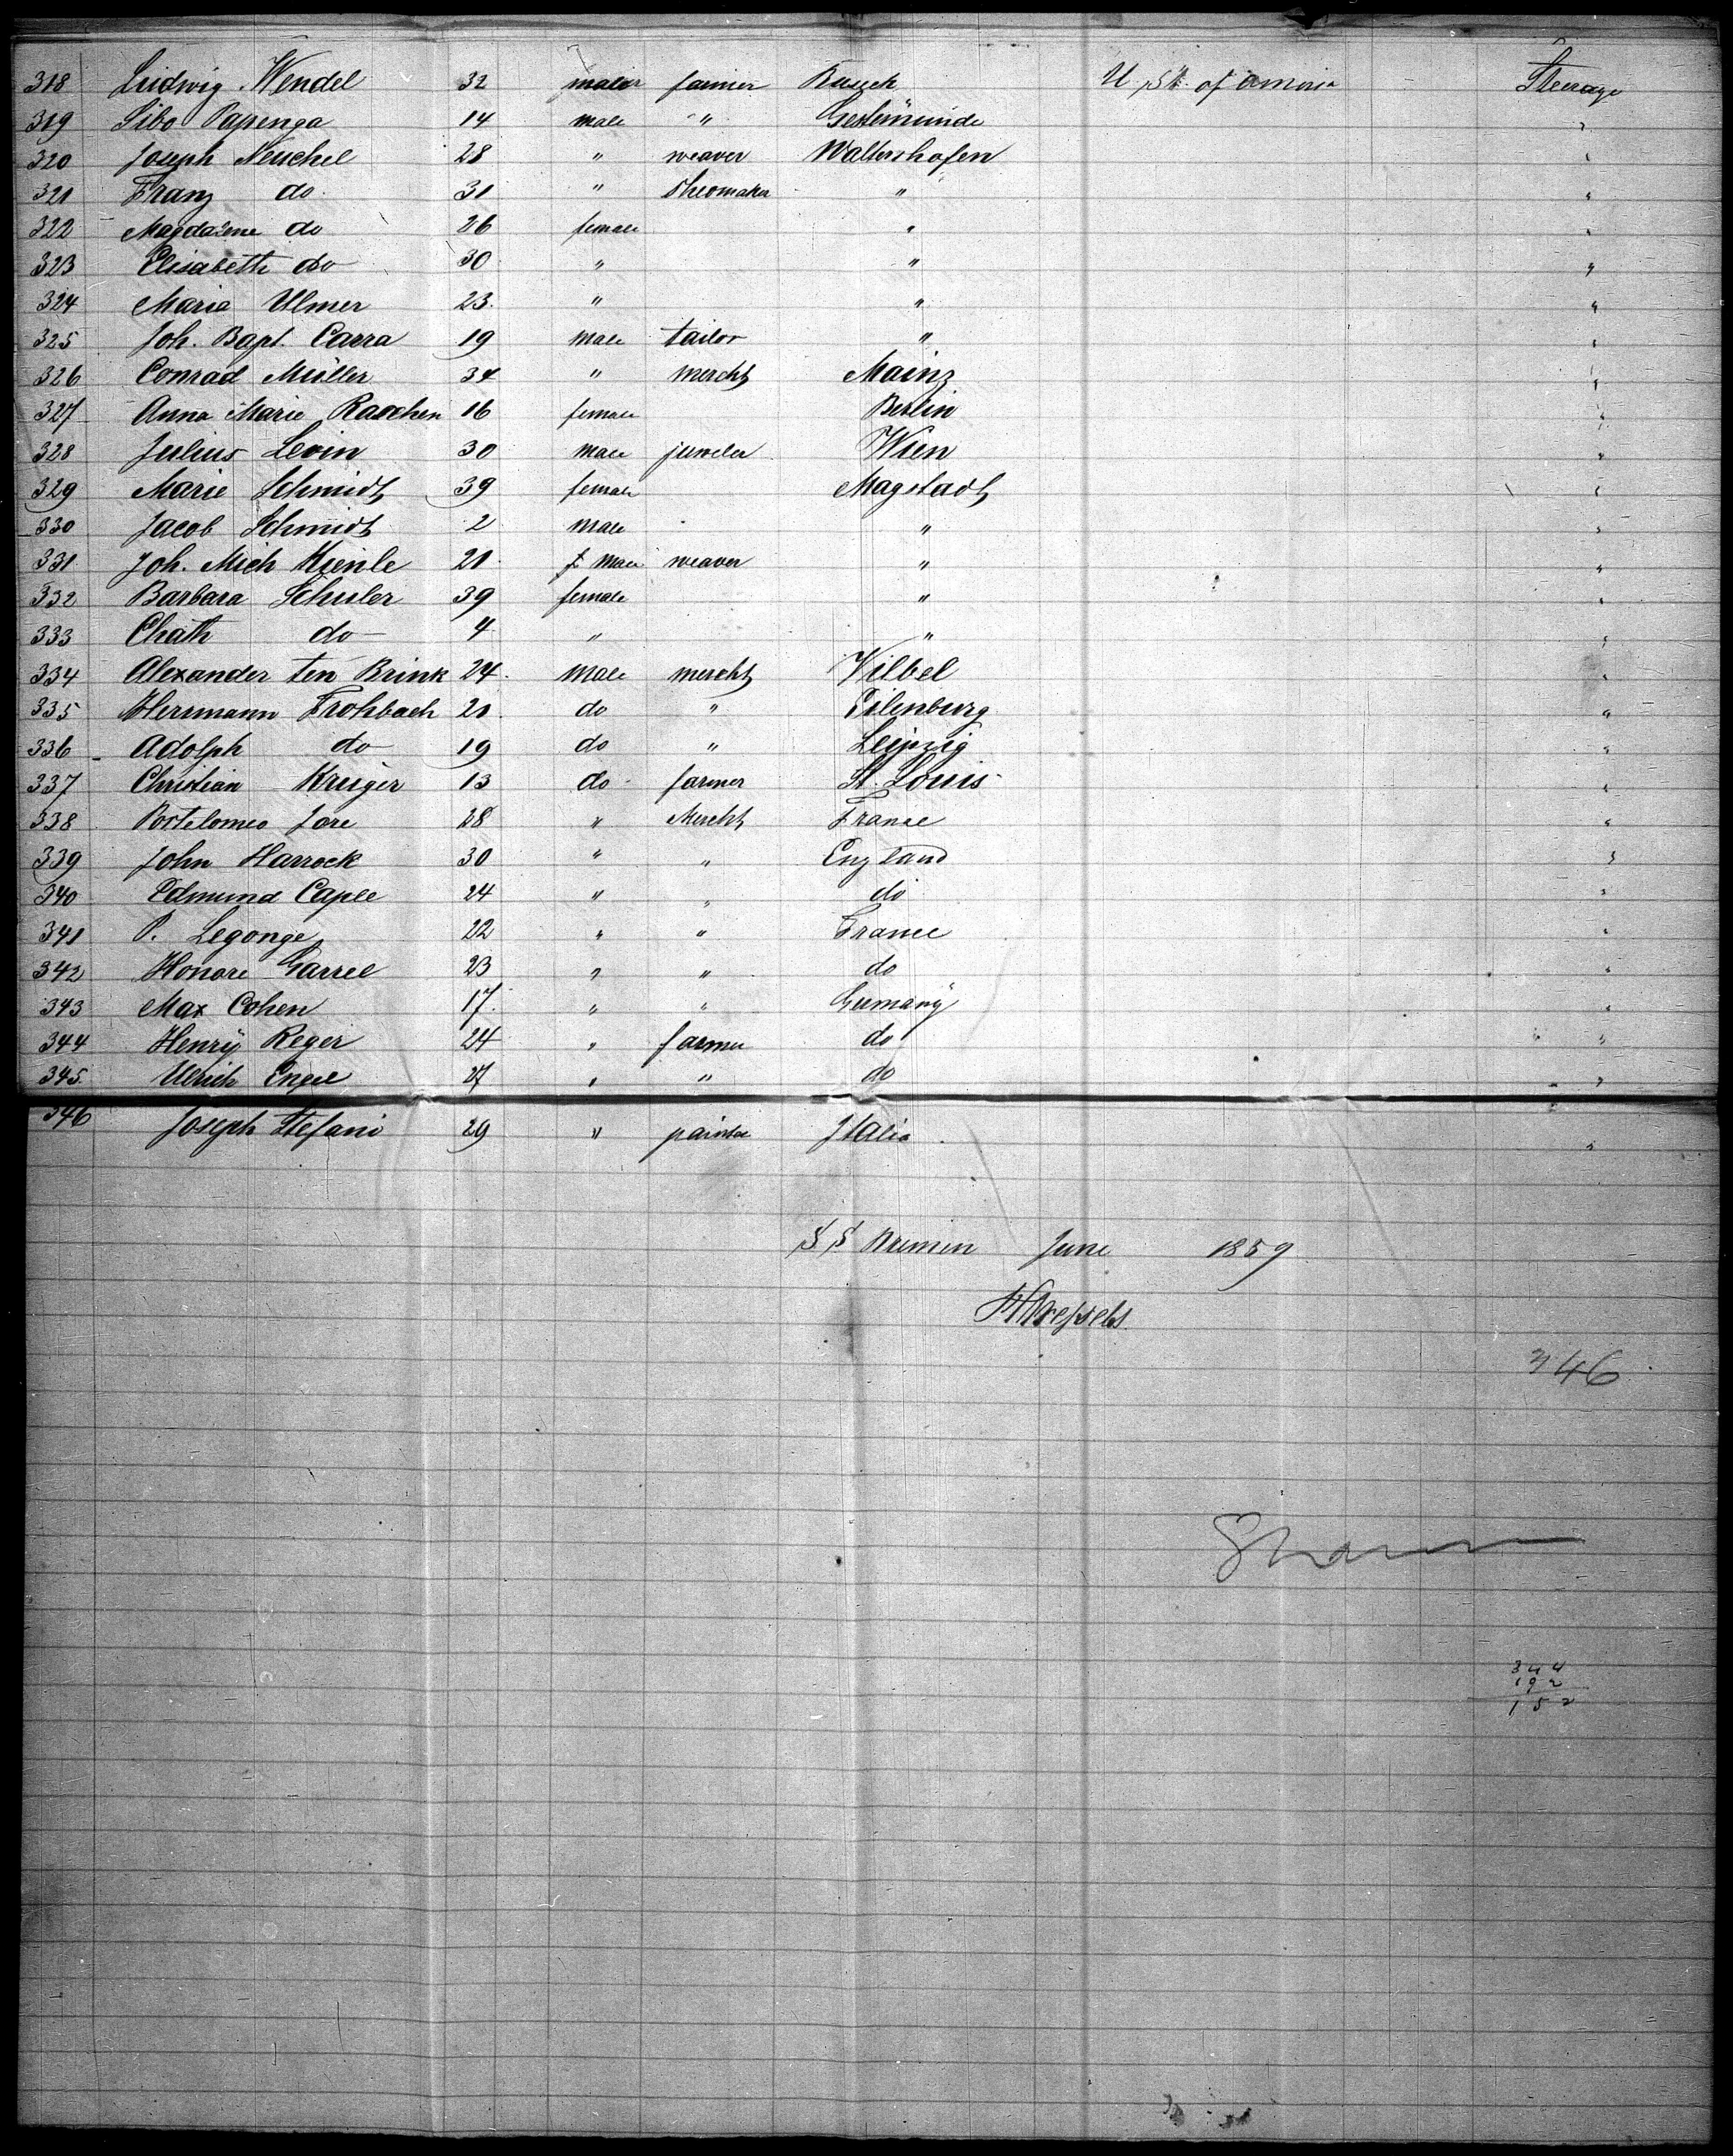 318 Ludwig Wendel 32 male farmer U St. of America Steerage
319 Sibo Papenga 14 male " Gestemünde "
320 Joseph Neuchel 28 " weaver Waltershofen "
321 Franz do 31 " Sheomaker " "
322 Magdalene do 26 female " "
323 Elisabeth do 30 " " "
324 Maria Ulmer 23. " " "
325 Joh. Bapt. Carra 19 male tailor " "
326 Conrad Müller 34 " mercht Mainz "
327 Anna Marie Raschen 16 female Berlin "
328 Julius Levin 30 male juweler Wien "
329 Marie Schmidt 39 female Magstadt "
330 Jacob Schmidt 2 male " "
331 Joh. Mich Kienle 21 male weaver " "
332 Barbara Schuler 39 female " "
333 Chath do 4 " " "
334 Alexander ten Brink 24. male mercht Vilbel "
335 Herrmann Frohbach 21. do " Eilenburg "
336 Adolph do 19 do " Leipzig "
337 Christian Kruger 13 do farmer St. Louis "
338 Bortelomeo Jore 28 " Mercht France "
339 John Harrock 30 " " England "
340 Edmund Caple 24 " " do "
341 P. Legonge 22 " " France "
342 Honore Garrel 23 " " do "
343 Max Cohen 17. " " Germany "
344 Henry Reger 24 " farmer do "
345. Ulrich Engel 27 " " do "
346 Joseph Stefani 29 " painter Italia "
SS Bremen June 1859
HWessels.
346
344
192
152